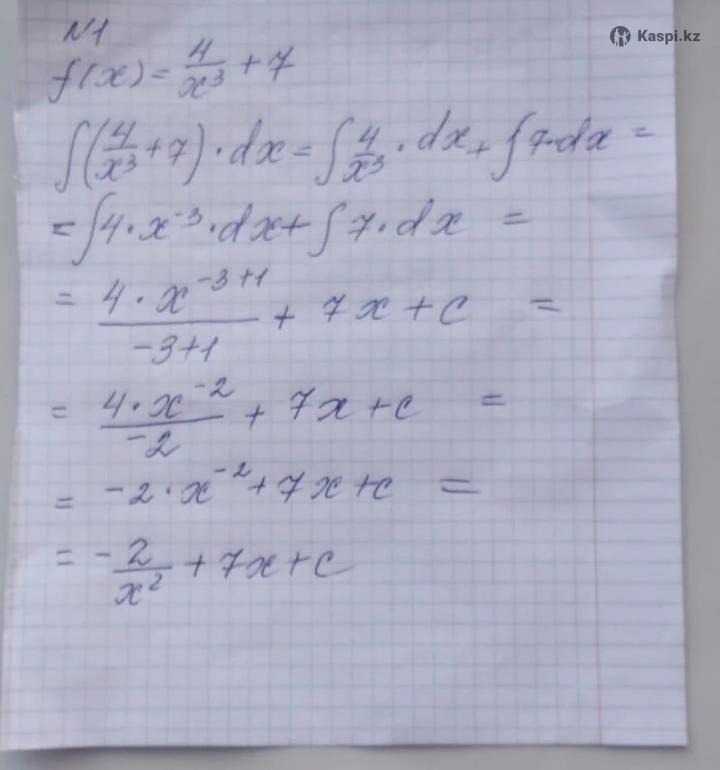 Kaspi.kz
N1
f(x) = 4/x³ + 7
∫(4/x³ + 7) · dx = ∫ 4/x³ · dx + ∫ 7 · dx =
= ∫ 4 · x⁻³ · dx + ∫ 7 · dx =
= 4 · x⁻³⁺¹/-3+1 + 7x + c =
= 4 · x⁻²/-2 + 7x + c =
= -2 · x⁻² + 7x + c =
= -2/x² + 7x + c